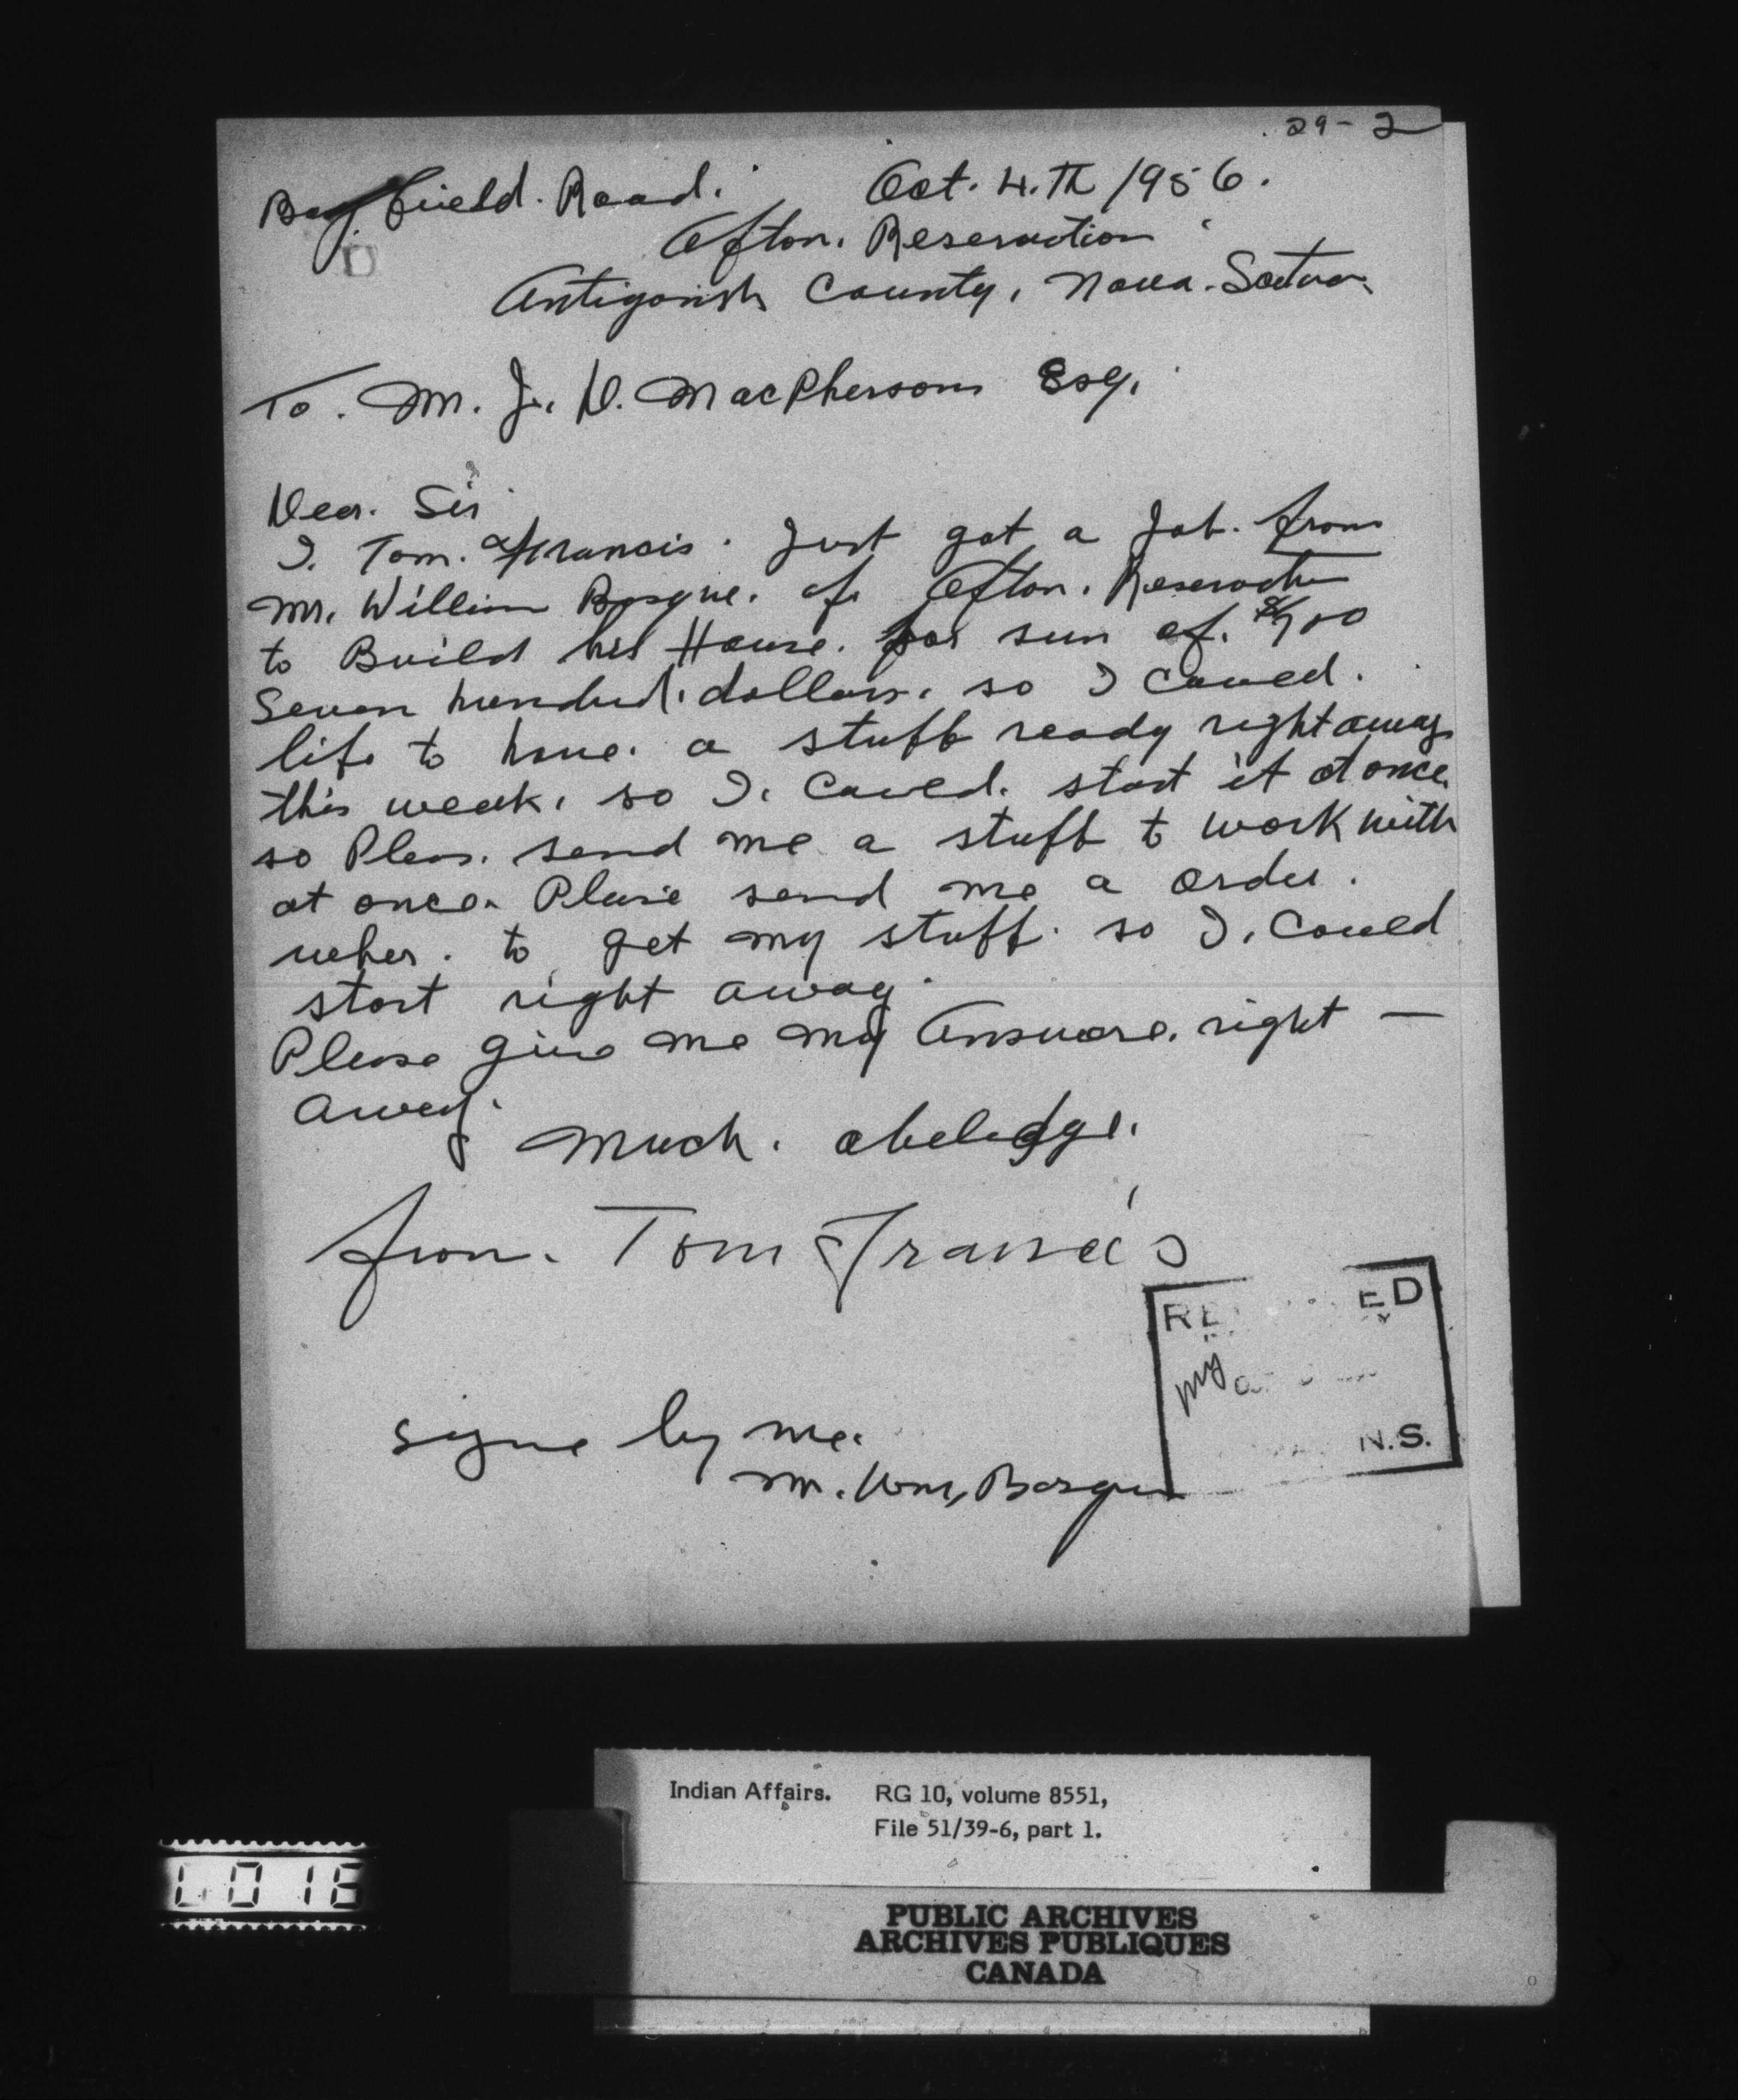 29-2
Bayfield. Road. Oct. 4.Th 1956.
Afton. Reservation
Antigonish County, Nova. Scotia.
To. Mr. J. D. MacPherson Esq.
Dear. Sir
I. Tom. Francis. Just got a Job. from
Mr. William Basque. of. Afton. Reservation
to Build his House. for sum of. $700
Seven hundred. dollars. so I Coued.
life to have. a stuff ready right away
this week. so I. Coued. start it at once.
so Pleas. send me a stuff to work with
at once. Pleasie send me a order.
wher. to get my stuff. so I. Could
start right away.
Please give me my Answare. right —
away.
Much. abeledge.
from. Tom Francis
signe by me.
Mr. Wm, Basque
RE ED
N.S.
Indian Affairs. RG 10, volume 8551,
File 51/39-6, part 1.
PUBLIC ARCHIVES
ARCHIVES PUBLIQUES
CANADA